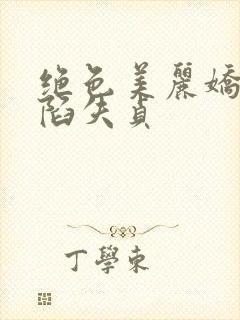 绝色美麗嬌
陷失貞
丁學東